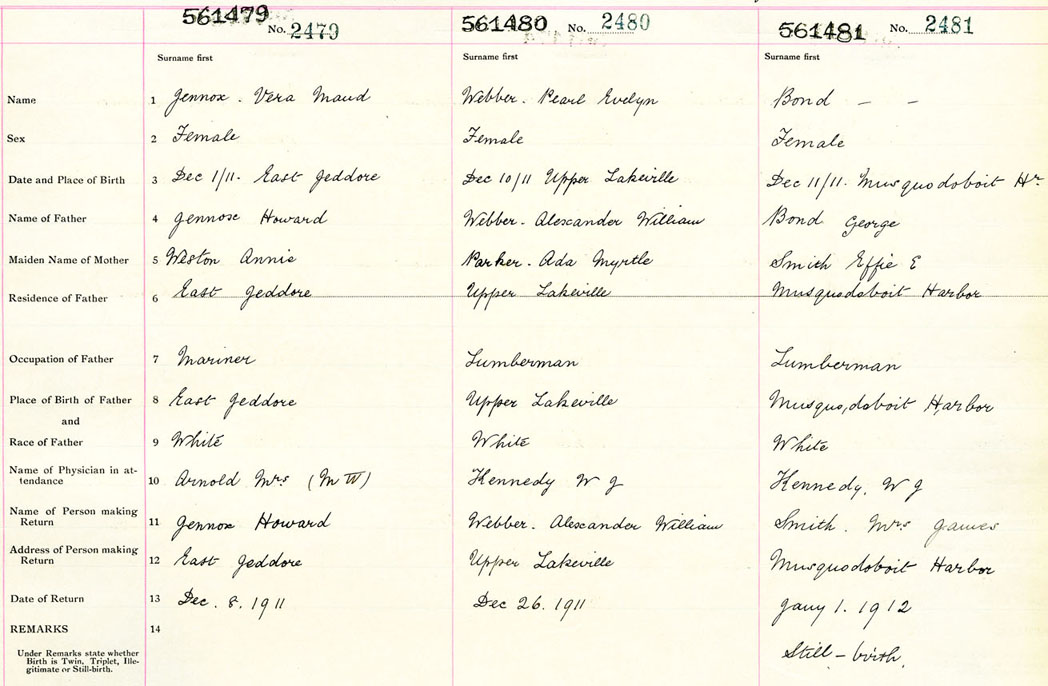 561479 No. 2479 561480 No. 2480 561481 No. 2481
Surname first Surname first Surname first
Name 1 Jennox. Vera Maud Webber. Pearl Evelyn Bond – –
Sex 2 Female Female Female
Date and Place of Birth 3 Dec 1/11. East Jeddore Dec 10/11 Upper Lakeville Dec 11/11. Musquodoboit Hr
Name of Father 4 Jennox Howard Webber. Alexander William Bond George
Maiden Name of Mother 5 Weston Annie Parker. Ada Myrtle Smith Effie E
Residence of Father 6 East Jeddore Upper Lakeville Musquodoboit Harbor
Occupation of Father 7 Mariner Lumberman Lumberman
Place of Birth of Father 8 East Jeddore Upper Lakeville Musquodoboit Harbor
and
Race of Father 9 White White White
Name of Physician in at-
tendance 10 Arnold Mrs (M W) Kennedy W J Kennedy. W J
Name of Person making
Return 11 Jennox Howard Webber. Alexander William Smith. Mrs James
Address of Person making
Return 12 East Jeddore Upper Lakeville Musquodoboit Harbor
Date of Return 13 Dec. 8. 1911 Dec 26. 1911 Jany 1. 1912
REMARKS 14
Under Remarks state whether
Birth is Twin, Triplet, Ille-
gitimate or Still-birth.
Still – birth.